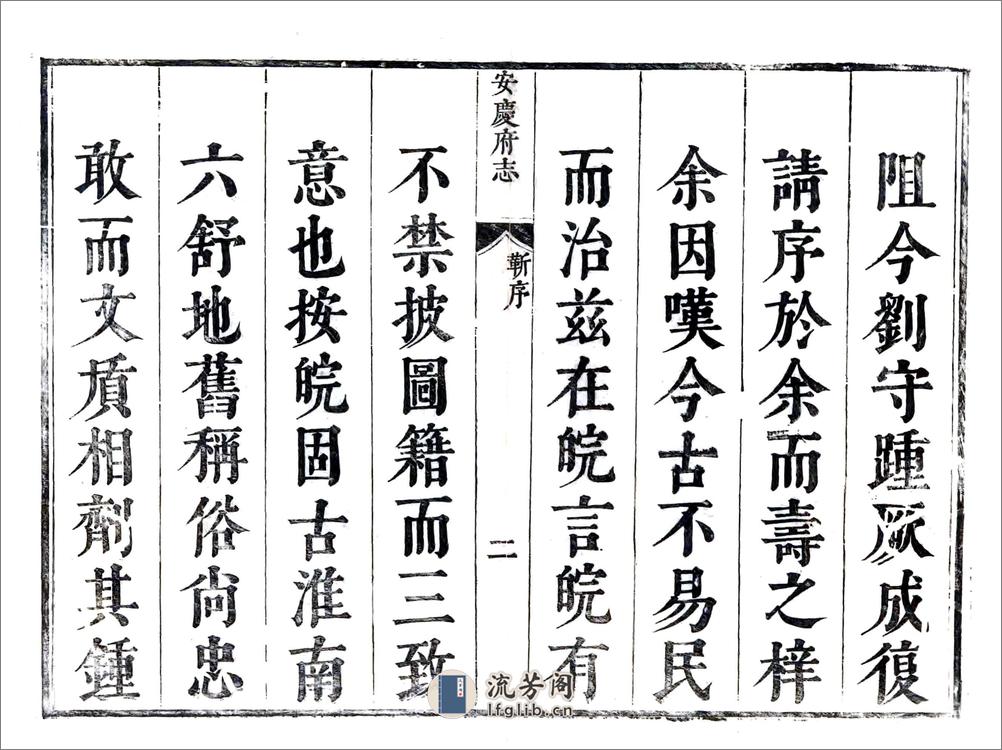 阻今劉守踵厥成復
請序於余而壽之梓
余因嘆今古不易民
而治兹在皖言皖有
安慶府志
靳序
二
不禁披圖籍而三致
意也按皖固古淮南
六舒地舊稱俗尚忠
敢而文質相劑其鍾
流芳阁
lfglib.cn